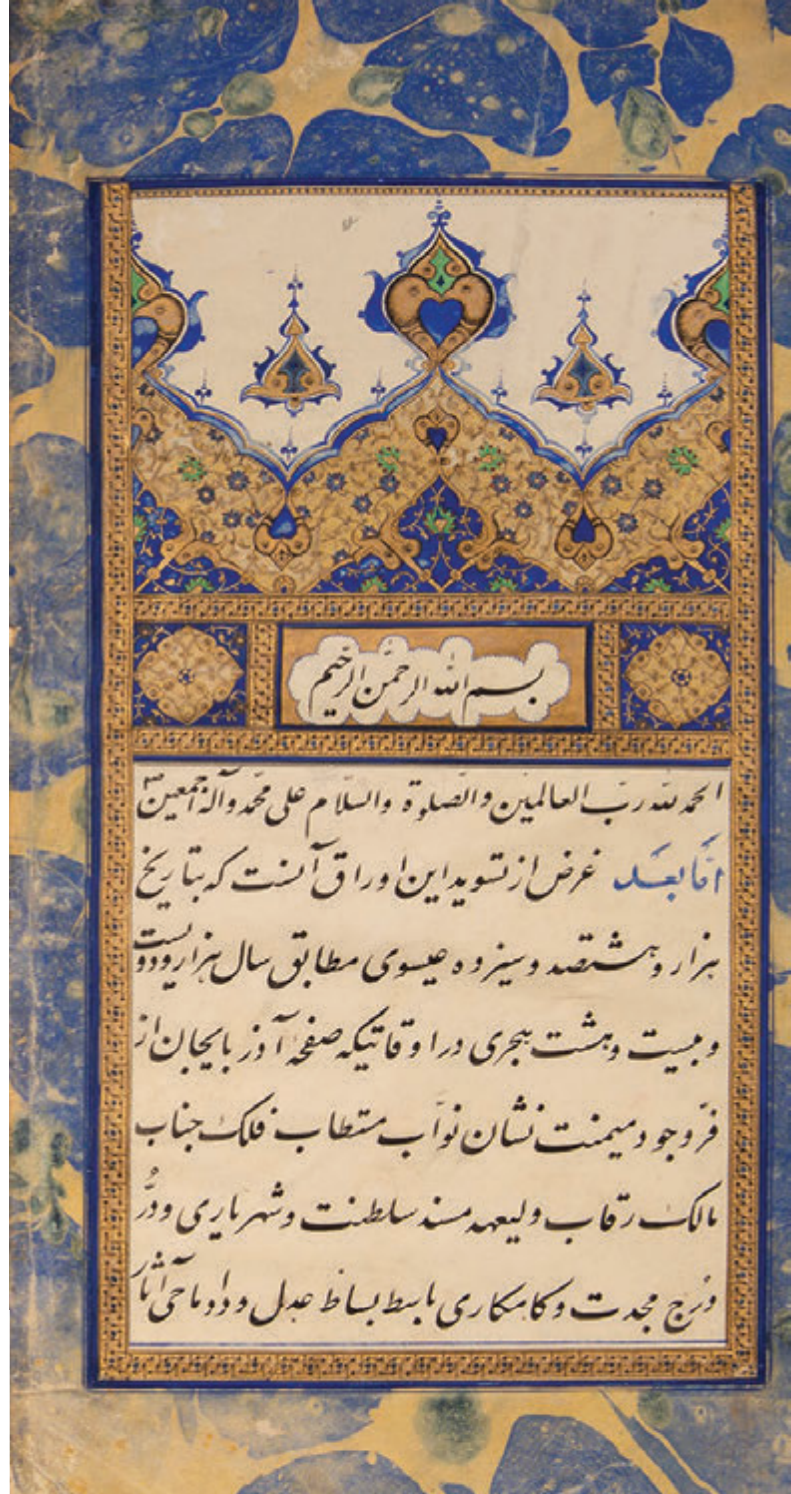 بسم الله الرحمن الرحیم
الحمد لله رب العالمین والصلوة والسلام علی محمد وآله اجمعین
امّا بعد غرض از تسوید این اوراق آنست که بتاریخ
هزار و هشتصد و سیزده عیسوی مطابق سال هزار و دویست
و بیست و هشت هجری در اوقاتیکه صفحهٔ آذربایجان از
فرّ وجود میمنت نشان نوّاب مستطاب فلک جناب
مالک رقاب ولیعهد مسند سلطنت و شهریاری و دُرّ
دُرج مجدت و کامکاری باسط بساط عدل و داد ماحی آثار